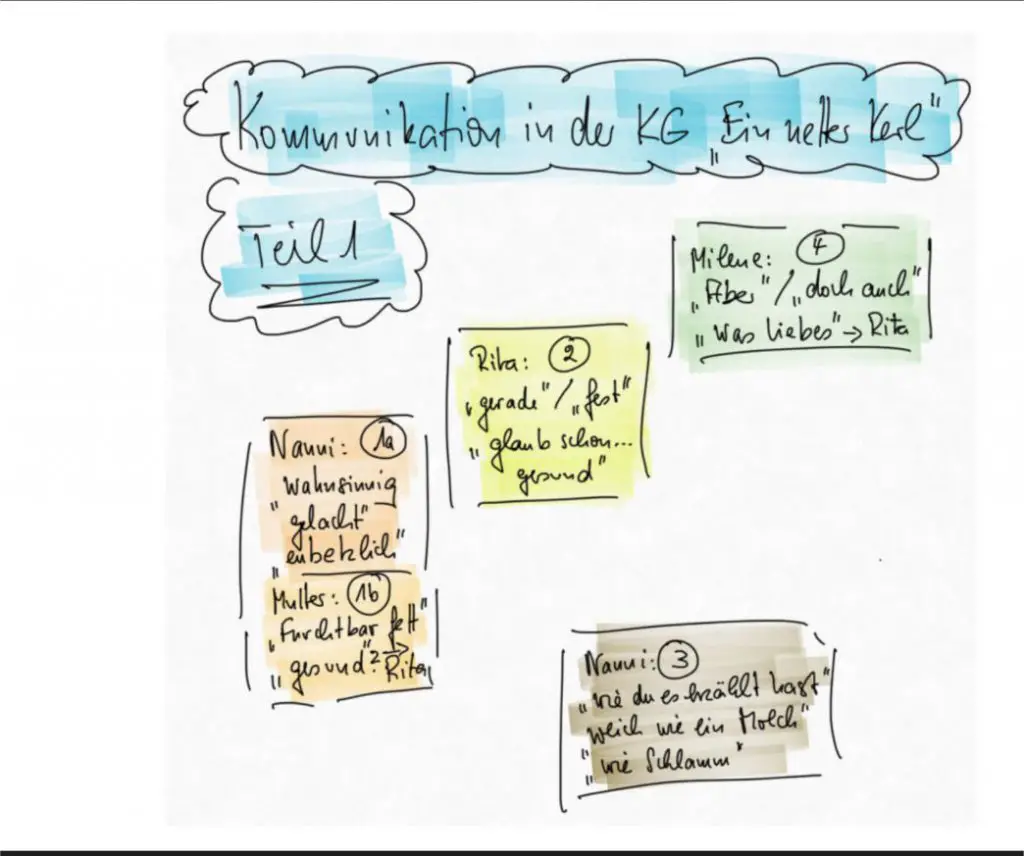 Kommunikation in der KG „Ein netter Kerl"
Teil 1
Milene: 4
„Aber" / „doch auch"
„was liebes" → Rita
Rita: 2
„gerade" / „fest"
„glaub schon...
gesund"
Nanni: 1a
„wahnsinnig
gelacht"
„entsetzlich"
Mutter: 1b
„Furchtbar fett"
„gesund"? → Rita
Nanni: 3
„wie du es erzählt hast"
„weich wie ein Molch"
„wie Schlamm"